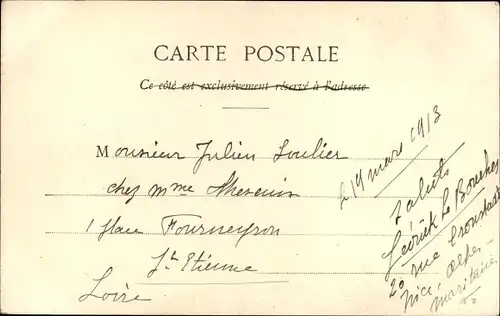 CARTE POSTALE
Ce côté est exclusivement réservé à l'adresse
Monsieur Julien Soulier
chez Mme
1 place Fourneyron
St Etienne
Loire
le 19 mars 1913
Saluts
Le
20 rue Cronstadt
Nice, Alpes-
Maritimes